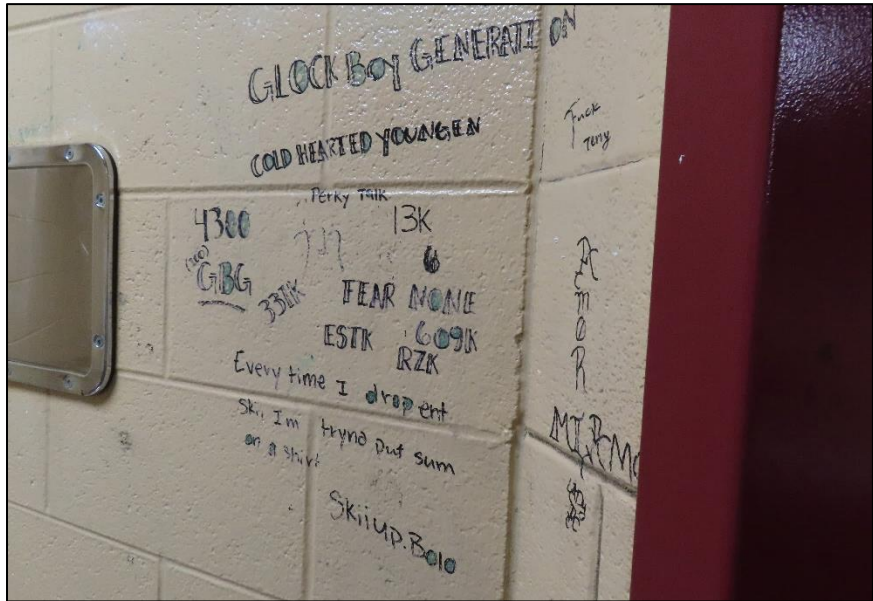 GLOCK Boy GENERATION
COLD HEARTED YOUNGEN
Fuck
Tony
Perky Talk
4300
13K
(300)
GBG
33EK
6
FEAR NONE
ESTK 609K
RZK
Every time I drop ent
Skii Im tryna put sum
on a shirt
Skiiup.Bolo